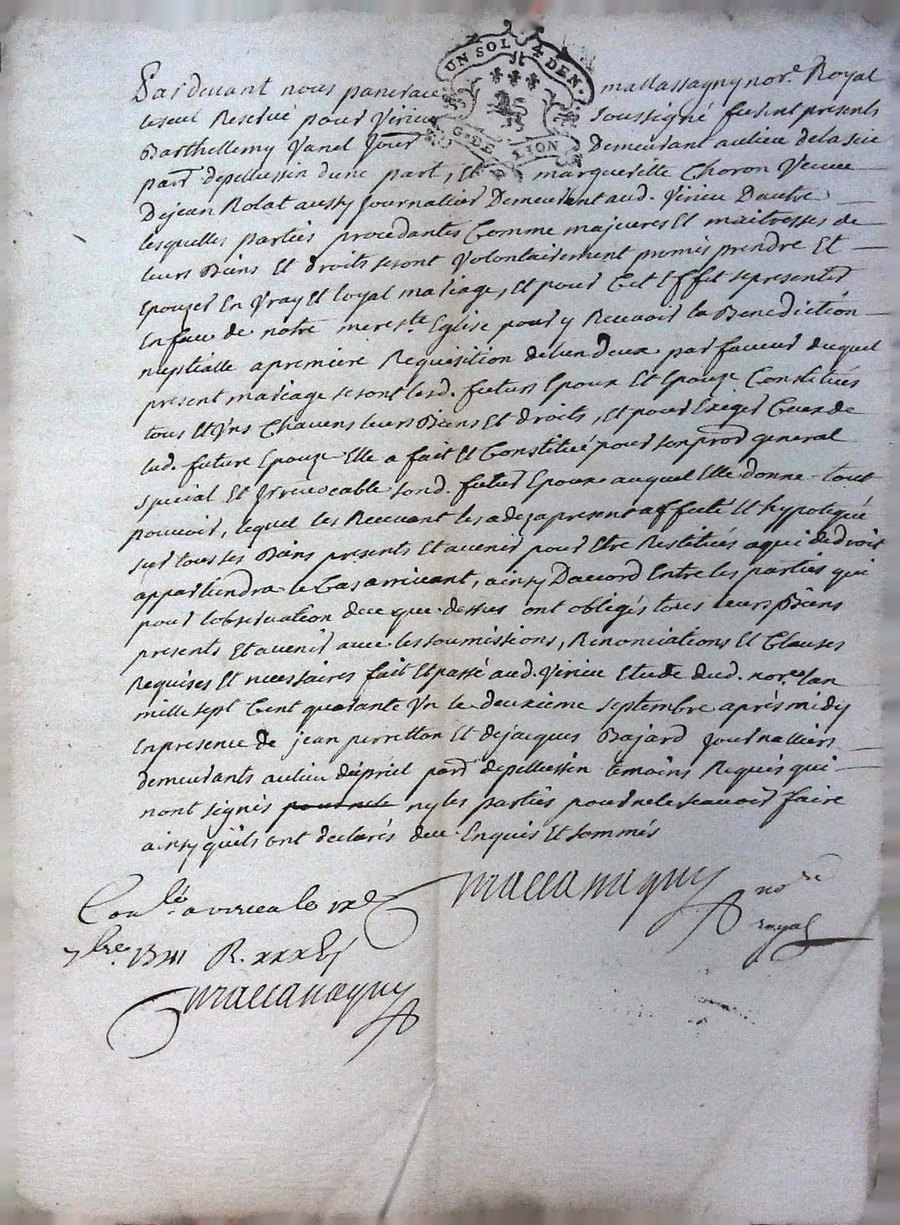 UN SOL 4 DEN.
G. DE LION
Pardevant nous pancrace mallassagny nore. Royal
Reservé pour Virieu soussigné furent presents
Barthellemy Vanel Jour demeurant au lieu de la
parr depellussin dune part, Et margueritte Choron Veuve
De jean Rolat aussy Journallier Demeurent aud. Virieu Dautre
lesquelles parties procedantes Comme majeures Et maitresses de
leurs Biens Et droits seront Volontairement promis prendre Et
Epouzer En Vray Et loyal mariage, Et pour Cet Effet se presenter
En face de notre mere ste Eglise pour y Recevoir la Benediction
nuptialle a premiere Requisition de lun deux par faveur duquel
present mariage se sont lesd. futurs Epoux Et Epouze Constitués
tous Et Uns Chacuns leurs Biens Et droits, Et pour Exiger Ceux de
lad. future Epouze Elle a fait Et Constitué pour son procr general
special Et Irrevocable sond. futur Epoux auquel Elle donne tout
pouvoir, lequel les Recevant les a dezapresent affecté Et hypotequé
sur tous ses Biens presents Et avenir pour Etre Restitués a qui de droit
appartiendra le Cas arrivant, ainsy Daccord Entre les parties qui
pour lobservation de ce que dessus ont obligés tous leurs Biens
presents Et avenir avec les soumissions, Renonciations Et Clauses
Requises Et necessaires fait Et passé aud. Virieu Etude dud. nore. lan
mille sept Cent quarante Un le deuxieme septembre après midy
En presence de jean perretton Et de jacques Bajard Journalliers
demeurants au lieu parr depellussin temoins Requis qui
nont signés ny les parties pour ne le scavoir faire
ainsy quils ont declarés de ce Enquis Et sommés
mallassagny nore
royal
Conlé a virieu le
7bre. 1741 R.
mallassagny